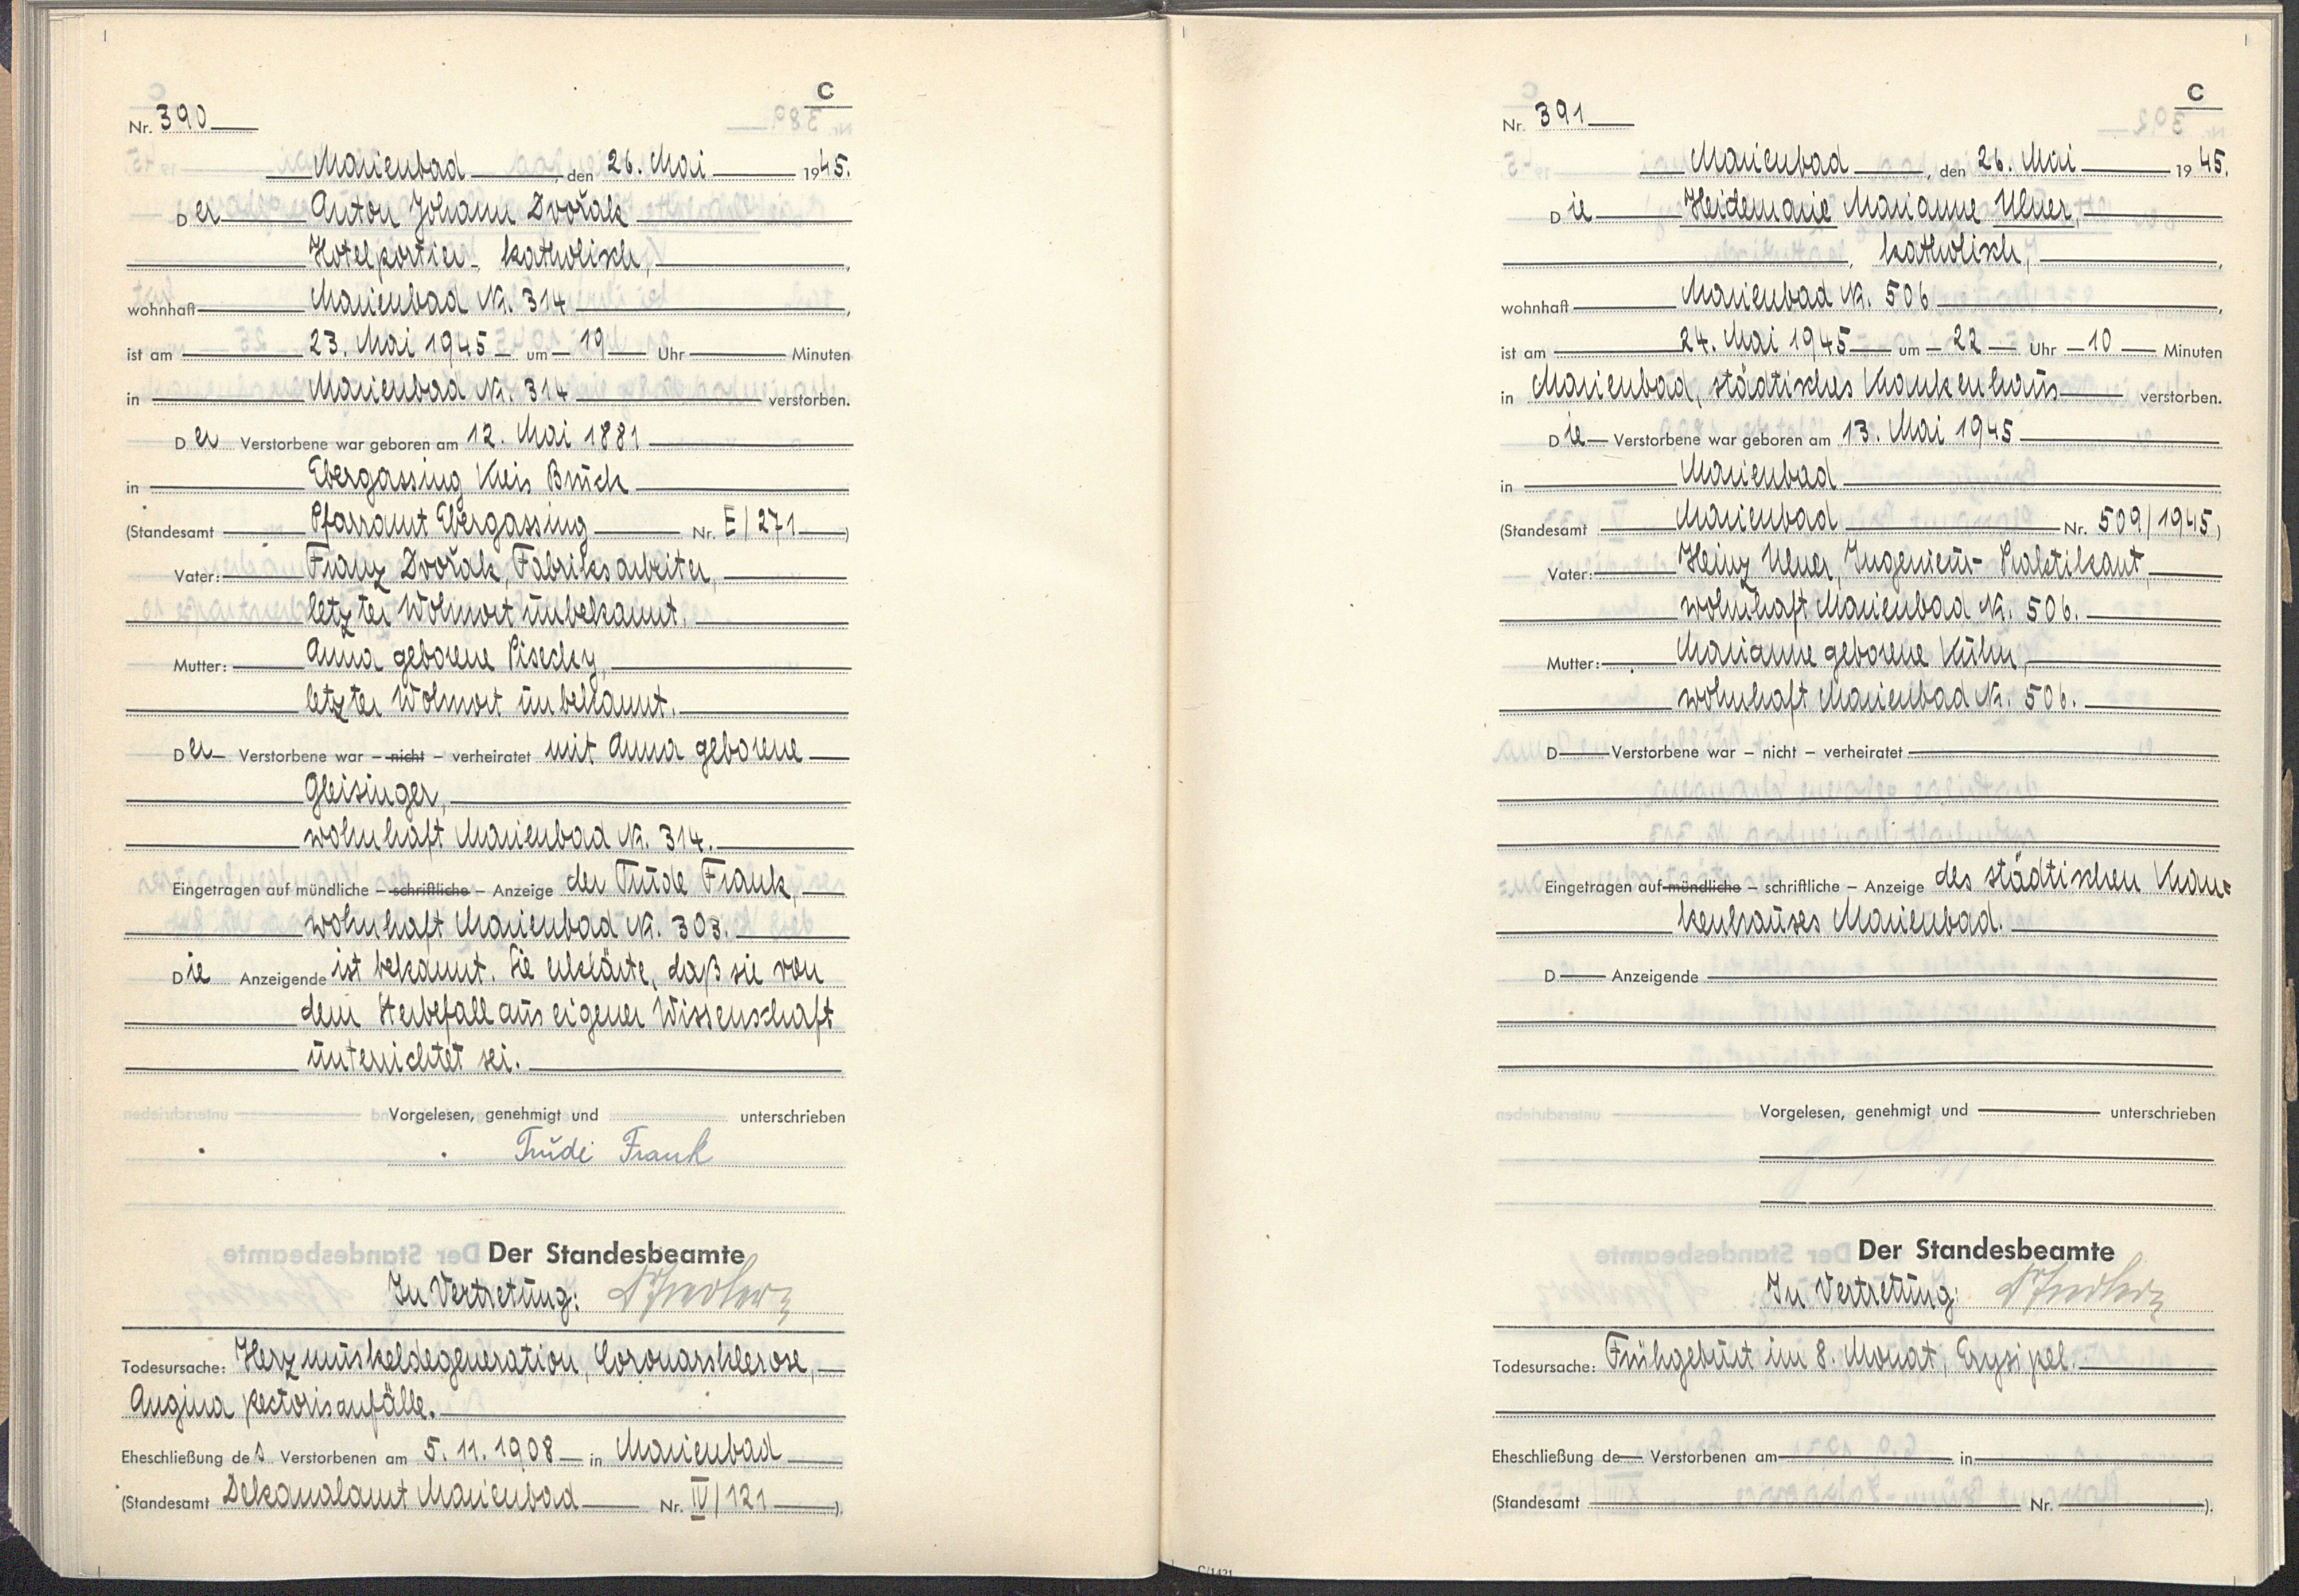 C
Nr. 390
Marienbad, den 26. Mai 1945.
Der Anton Johann Dvořak
Hotelportier, katholisch,
wohnhaft Marienbad Nr. 314,
ist am 23. Mai 1945 um 19 Uhr Minuten
in Marienbad Nr. 314 verstorben.
Der Verstorbene war geboren am 12. Mai 1881
in Ebergassing Kreis Bruck
(Standesamt Pfarramt Ebergassing Nr. E/271)
Vater: Franz Dvořak, Fabriksarbeiter,
letzter Wohnort unbekannt.
Mutter: Anna geborene Pisecky,
letzter Wohnort unbekannt.
Der Verstorbene war – nicht – verheiratet mit Anna geborene
Gleisinger,
wohnhaft Marienbad Nr. 314.
Eingetragen auf mündliche – schriftliche – Anzeige der Trude Frank,
wohnhaft Marienbad Nr. 303.
Die Anzeigende ist bekannt. Sie erklärte, daß sie von
dem Sterbefall aus eigener Wissenschaft
unterrichtet sei.
Vorgelesen, genehmigt und unterschrieben
Trude Frank
Der Standesbeamte
In Vertretung:
Todesursache: Herzmuskeldegeneration, Coronarsklerose,
Angina pectorisanfälle.
Eheschließung des Verstorbenen am 5. 11. 1908 in Marienbad
(Standesamt Dekanalamt Marienbad Nr. IV/121).
C
Nr. 391
Marienbad, den 26. Mai 1945.
Die Heidemarie Marianne Ulner,
, katholisch,
wohnhaft Marienbad Nr. 506,
ist am 24. Mai 1945 um 22 Uhr 10 Minuten
in Marienbad, städtisches Krankenhaus verstorben.
Die Verstorbene war geboren am 13. Mai 1945
in Marienbad
(Standesamt Marienbad Nr. 509/1945)
Vater: Heinz Ulner, Ingenieur-Praktikant,
wohnhaft Marienbad Nr. 506.
Mutter: Marianne geborene Kühn,
wohnhaft Marienbad Nr. 506.
D Verstorbene war – nicht – verheiratet
Eingetragen auf mündliche – schriftliche – Anzeige des städtischen Kran=
kenhauses Marienbad.
D Anzeigende
Vorgelesen, genehmigt und unterschrieben
Der Standesbeamte
In Vertretung:
Todesursache: Frühgeburt im 8. Monat, Erysipel.
Eheschließung de Verstorbenen am in
(Standesamt Nr. ).
C/1421